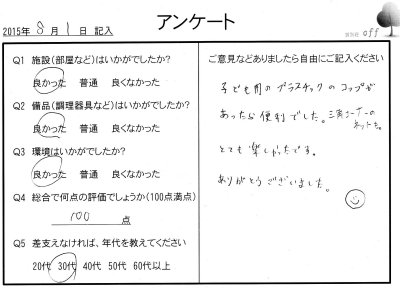 2015年 8 月 1 日 記入
アンケート
off
Q1 施設(部屋など)はいかがでしたか?
良かった 普通 良くなかった
Q2 備品(調理器具など)はいかがでしたか?
良かった 普通 良くなかった
Q3 環境はいかがでしたか?
良かった 普通 良くなかった
Q4 総合で何点の評価でしょうか(100点満点)
100 点
Q5 差支えなければ、年代を教えてください
20代 30代 40代 50代 60代以上
ご意見などありましたら自由にご記入ください
子ども用のプラスチックのコップが
あったら便利でした。三角コーナーの
ネットも。
とても楽しかったです。
ありがとうございました。